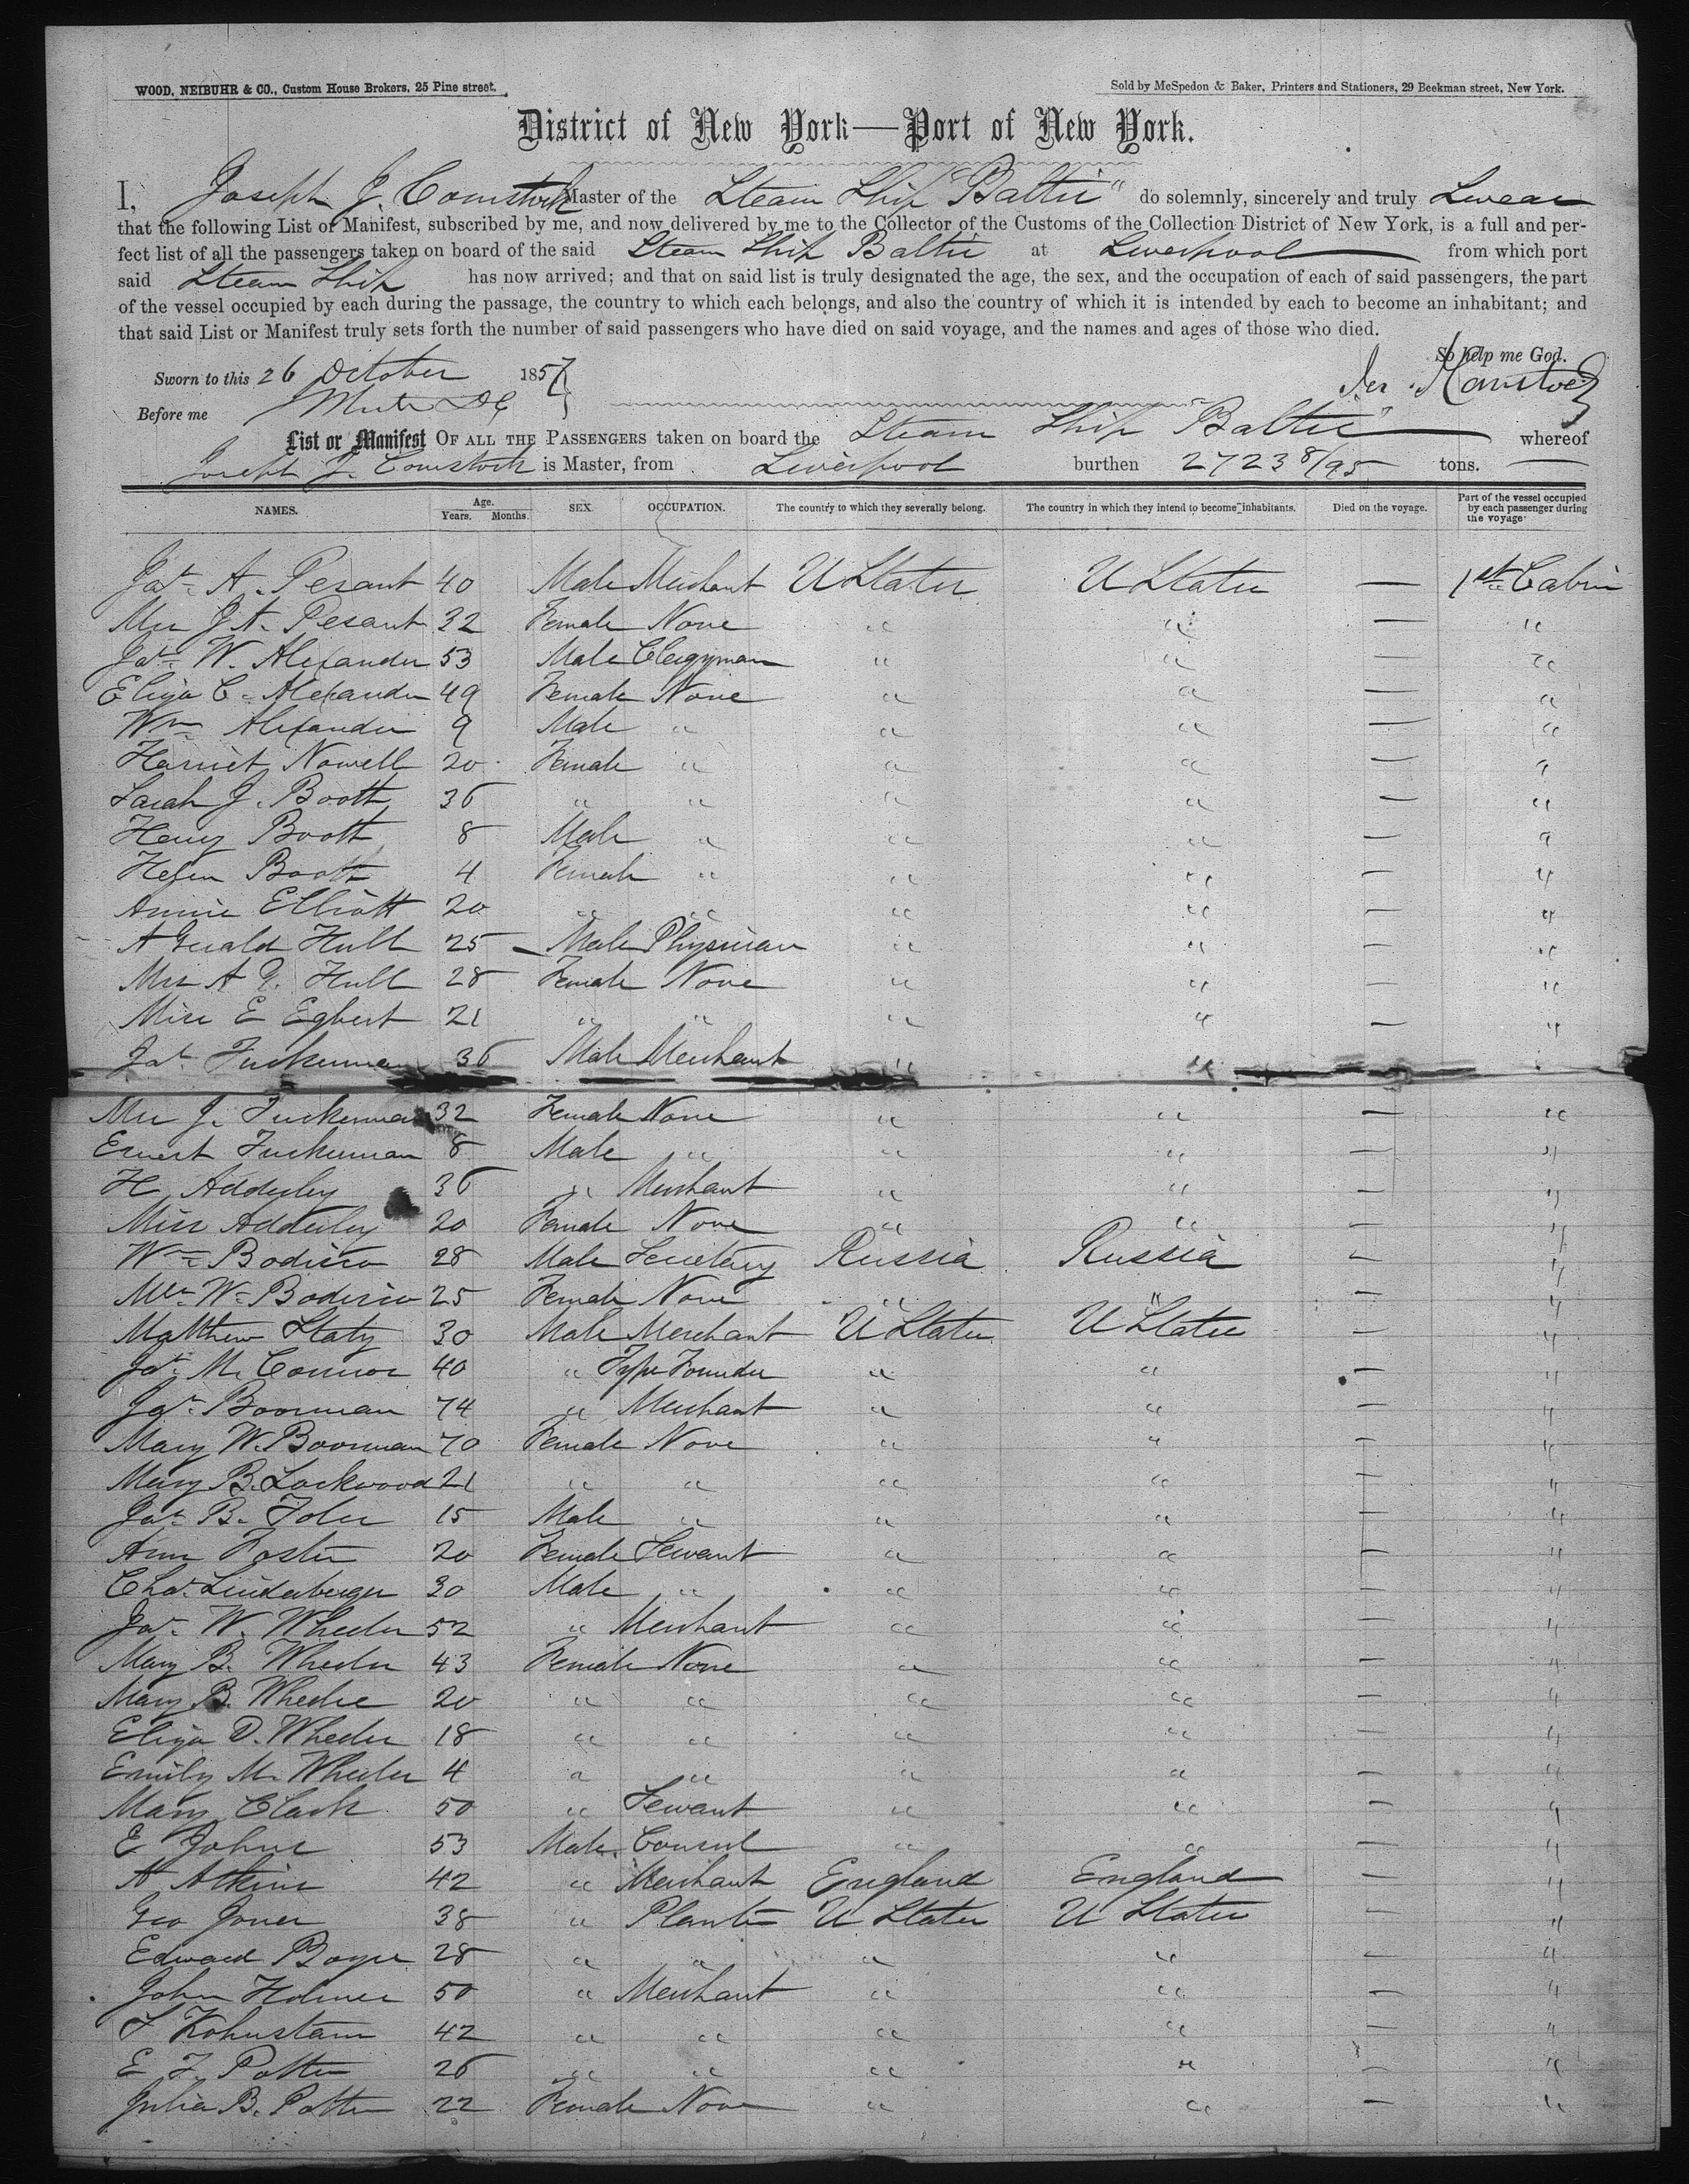 WOOD, NEIBUHR & CO., Custom House Brokers, 25 Pine street.
Sold by McSpedon & Baker, Printers and Stationers, 29 Beekman street, New York.
District of New York—Port of New York.
I, Joseph J. Comstock Master of the Steam Ship "Baltic" do solemnly, sincerely and truly Swear
that the following List or Manifest, subscribed by me, and now delivered by me to the Collector of the Customs of the Collection District of New York, is a full and per-
fect list of all the passengers taken on board of the said Steam Ship Baltic at Liverpool from which port
said Steam Ship has now arrived; and that on said list is truly designated the age, the sex, and the occupation of each of said passengers, the part
of the vessel occupied by each during the passage, the country to which each belongs, and also the country of which it is intended by each to become an inhabitant; and
that said List or Manifest truly sets forth the number of said passengers who have died on said voyage, and the names and ages of those who died.
So help me God.
Sworn to this 26 October 1857
Jos. J. Comstock
Before me
List or Manifest OF ALL THE PASSENGERS taken on board the Steam Ship Baltic whereof
Joseph J. Comstock is Master, from Liverpool burthen 2723 8/95 tons.
NAMES. Age. Years. Months. SEX. OCCUPATION. The country to which they severally belong. The country in which they intend to become inhabitants. Died on the voyage. Part of the vessel occupied by each passenger during the voyage
Jas. A. Pesant 40 Male Merchant U States U States — 1st Cabin
Mrs J A. Pesant 32 Female None " " — "
Jas. W. Alexander 53 Male Clergyman " " — "
Eliza C. Alexander 49 Female None " " — "
Wm Alexander 9 Male " " " — "
Harriet Nowell 20 Female " " " — "
Sarah J. Boott 36 " " " " — "
Henry Boott 8 Male " " " — "
Helen Boott 4 Female " " " — "
Annie Elliott 20 " " " " — "
A Gerald Hull 25 Male Physician " " — "
Mrs A G. Hull 28 Female None " " — "
Miss E Egbert 21 " " " " — "
Jas. Tuckerman 36 Male Merchant " "
Mrs J. Tuckerman 32 Female None " " — "
Ernest Tuckerman 8 Male " " " — "
H. Adderley 36 " Merchant " " — "
Miss Adderley 20 Female None " " — "
Wm Bodisco 28 Male Secretary Russia Russia — "
Mrs W. Bodisco 25 Female None " " — "
Matthew 30 Male Merchant U States U States — "
Jas. M. Connor 40 " Type Founder " " — "
Jas. Boorman 74 " Merchant " " — "
Mary W. Boorman 70 Female None " " — "
Mary B. Lockwood 21 " " " " — "
Jas. B. Toler 15 Male " " " — "
Ann Foster 20 Female Servant " " — "
Chas. Lindaberger 30 Male " " " — "
Jas. W. Wheeler 52 " Merchant " " — "
Mary B. Wheeler 43 Female None " " — "
Mary B. Wheeler 20 " " " " — "
Eliza D. Wheeler 18 " " " " — "
Emily M. Wheeler 4 " " " " — "
Mary Clark 50 " Servant " " — "
E Johns 53 Male Consul " " — "
A Atkins 42 " Merchant England England — "
Geo Jones 38 " Planter U States U States — "
Edward 28 " " " " — "
John Holmes 50 " Merchant " " — "
S Kohnstam 42 " " " " — "
E F. Potter 26 " " " " — "
Julia B. Potter 22 Female None " " — "